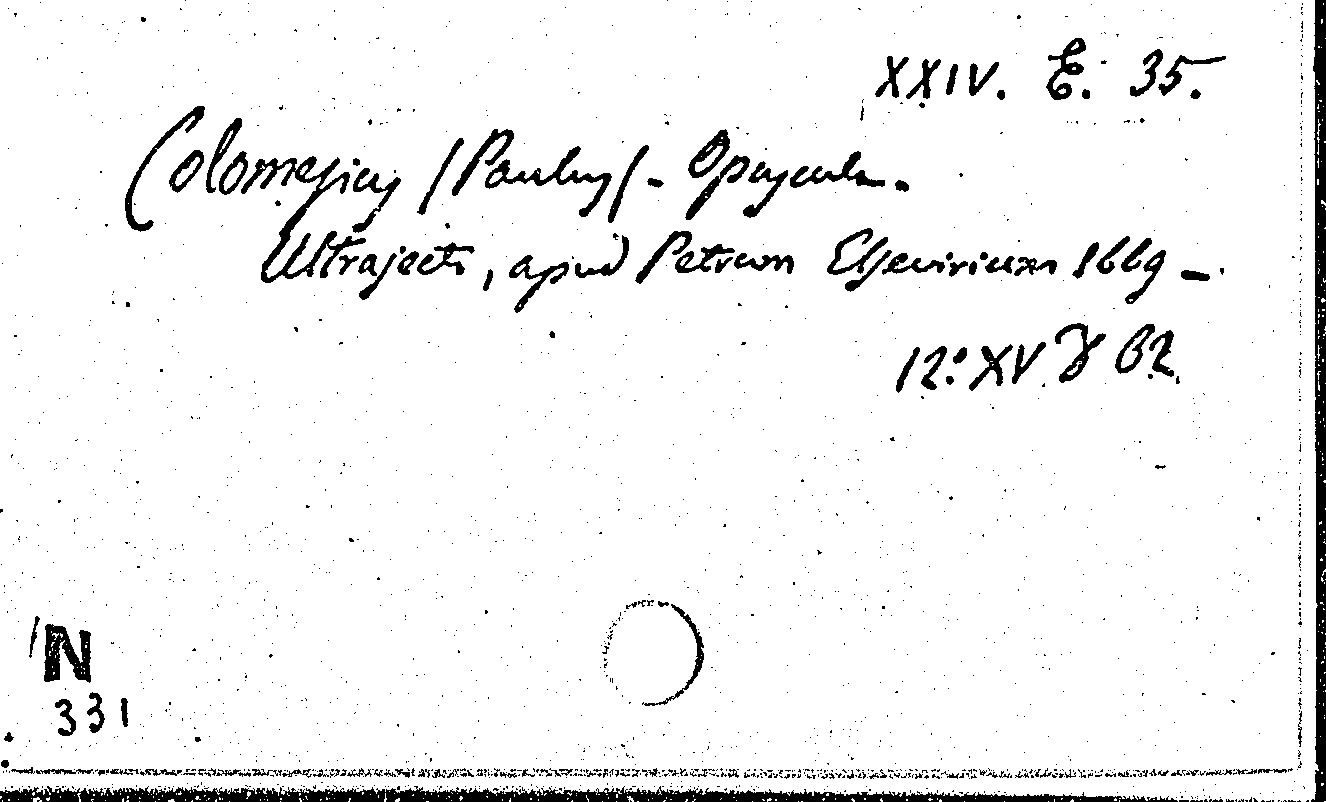 XXIV. E. 35.
Colomesius /Paulus/. Opuscula.
Ultrajecti, apud Petrum Elsevirium 1669 -
12:° XV
N
331